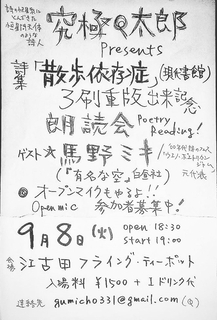 究極Q太郎
Presents
詩集「散歩依存症」(現代書館)
3刷重版出来記念
朗読会 Poetry Reading!
ゲスト☆ 馬野ミキ
(『有名な空』白昼社)
元代表
◎ オープンマイクもやるよ!!
Open mic 参加者募集中!
9月8日(火) open 18:30
start 19:00
会場 江古田フライング・ティーポット
入場料 ¥1500 + 1ドリンク代
連絡先 gumicho331@gmail.com (Q)